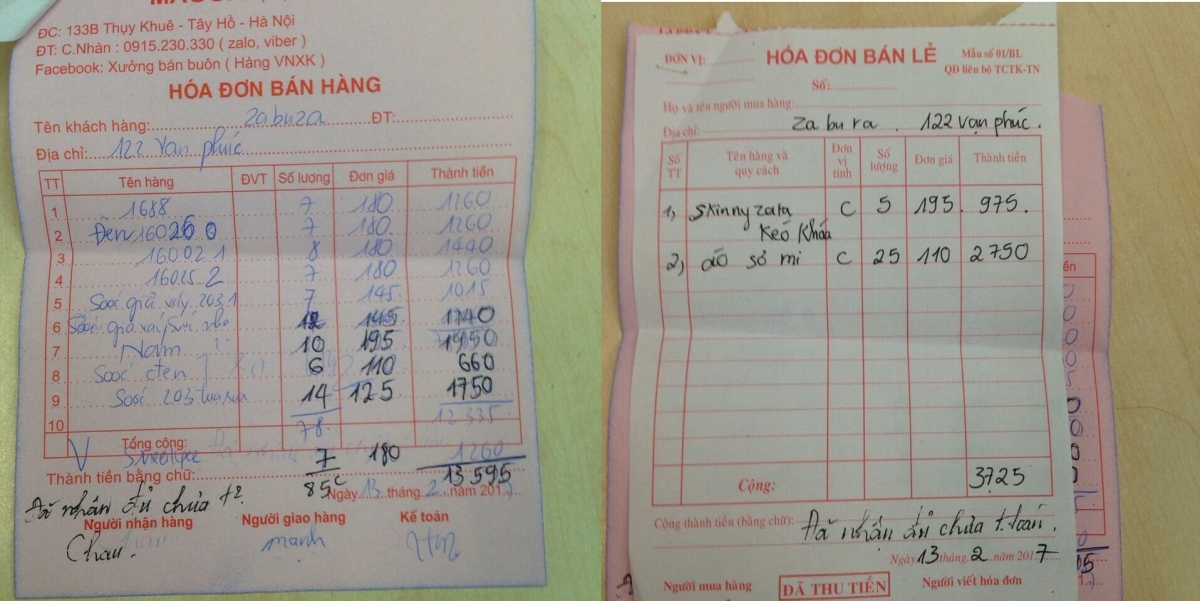 ĐC: 133B Thụy Khuê - Tây Hồ - Hà Nội
ĐT: C.Nhàn : 0915.230.330 ( zalo, viber )
Facebook: Xưởng bán buôn ( Hàng VNXK )
HÓA ĐƠN BÁN HÀNG
Tên khách hàng: Zabuza ĐT:
Địa chỉ: 122 Vạn phúc
TT Tên hàng ĐVT Số lượng Đơn giá Thành tiền
1 1688 7 180 1260
2 Đen 7 180 1260
3 160021 8 180 1440
4 16025.2 7 180 1260
5 Sooc giả váy 203.1 7 145 1015
6 Sooc giả 12 145 1740
7 Nam 10 195 1950
8 Sooc 6 110 660
9 Sooc 203 14 125 1750
10 78 12335
Tổng cộng:
V 7 180 1260
Thành tiền bằng chữ: 85c 13595
Ngày 13 tháng 2 năm 201
Đã nhận đủ chưa t²
Người nhận hàng Người giao hàng Kế toán
Chau manh
ĐƠN VỊ: HÓA ĐƠN BÁN LẺ Mẫu số 01/BL
QĐ liên bộ TCTK-TN
Số:
Họ và tên người mua hàng:
Địa chỉ: Zabura. 122 Vạn phúc.
Số TT Tên hàng và quy cách Đơn vị tính Số lượng Đơn giá Thành tiền
1, Skinny zata C 5 195. 975.
Kéo Khóa
2, áo sơ mi C 25 110 2750
Cộng: 3725
Cộng thành tiền (bằng chữ): Đã nhận đủ chưa t.toán.
Ngày 13 tháng 2 năm 2017
Người mua hàng ĐÃ THU TIỀN Người viết hóa đơn